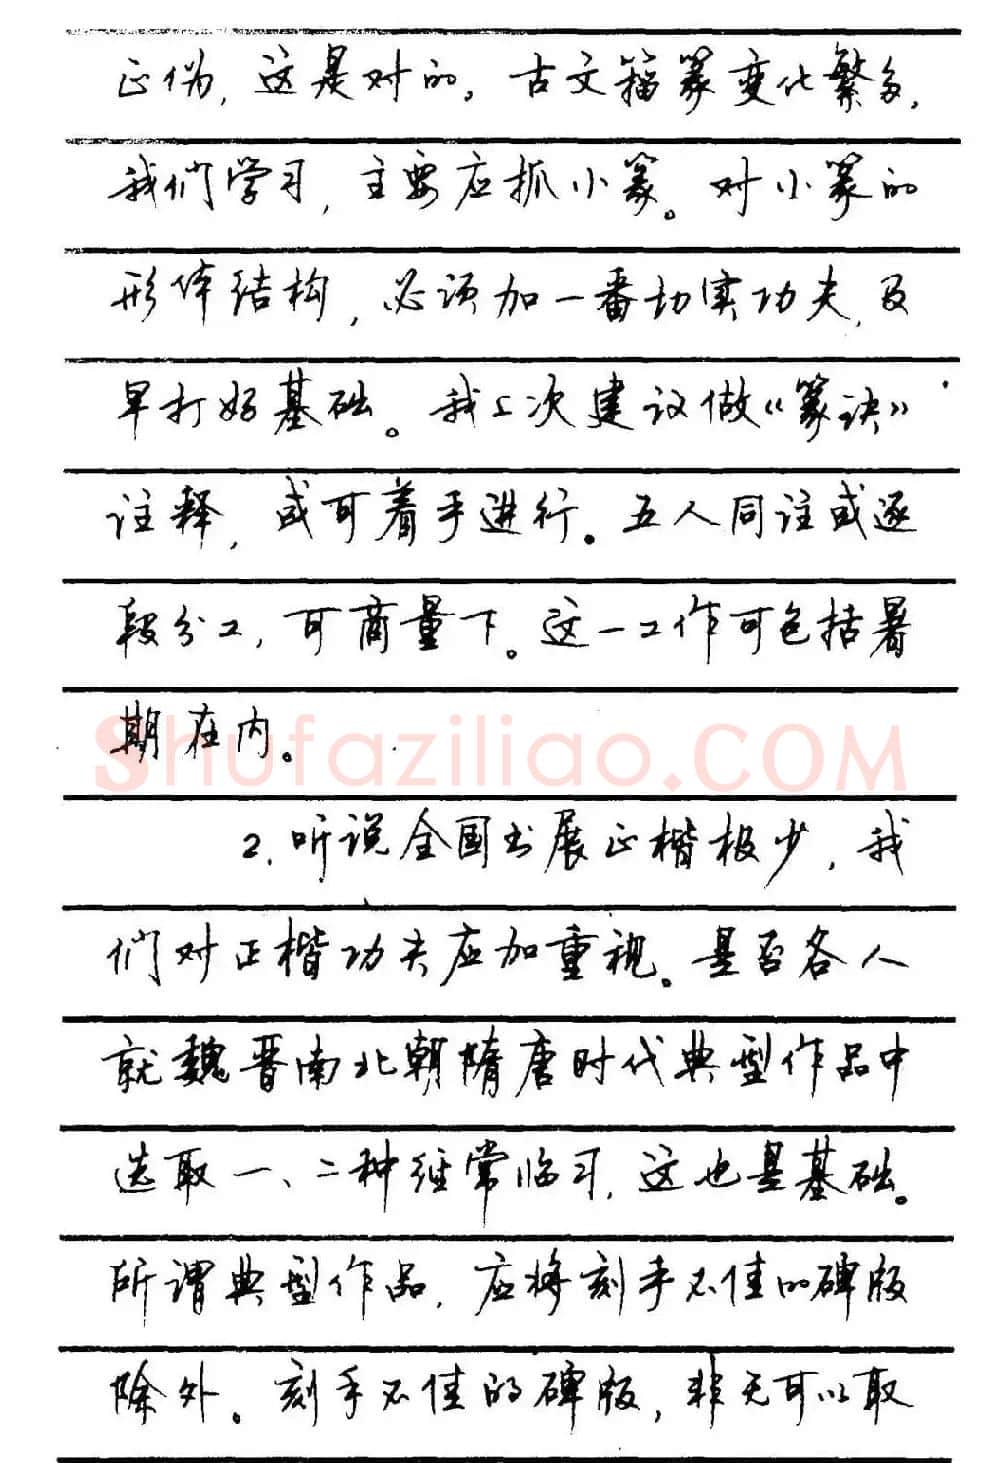 正伪，这是对的。古文籀篆变化繁多，
我们学习，主要应抓小篆。对小篆的
形体结构，必须加一番切实功夫，及
早打好基础。我上次建议做《篆诀》
注释，或可着手进行。五人同注或逐
段分工，可商量下。这一工作可包括暑
期在内。
Shufaziliao.COM
2.听说全国书展正楷极少，我
们对正楷功夫应加重视。是否各人
就魏晋南北朝隋唐时代典型作品中
选取一、二种经常临习，这也是基础。
所谓典型作品，应将刻手不佳的碑版
除外。刻手不佳的碑版，非无可以取